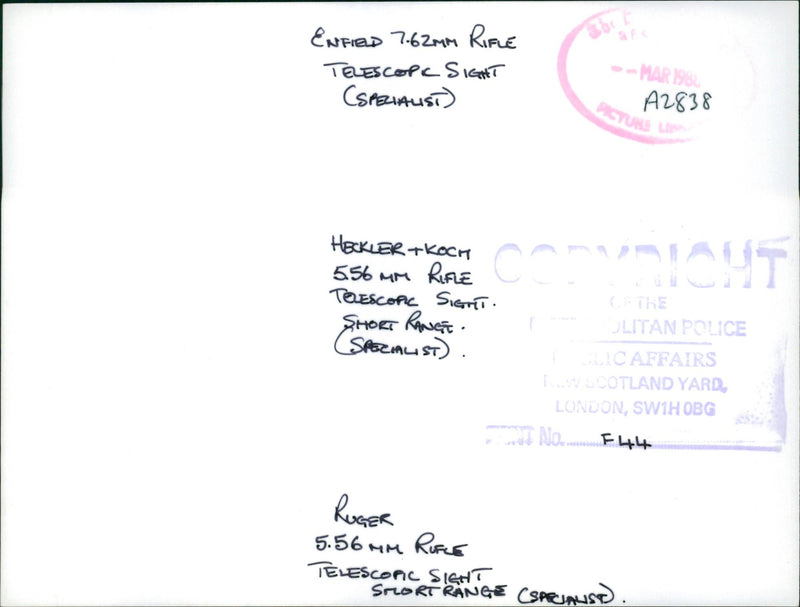 ENFIELD 7.62MM RIFLE
TELESCOPIC SIGHT
(SPECIALIST)
MAR 198
A2838
PICTURE
HECKLER + KOCH
5.56 MM RIFLE
TELESCOPIC SIGHT.
SHORT RANGE.
(SPECIALIST).
COPYRIGHT
OF THE
METROPOLITAN POLICE
PUBLIC AFFAIRS
NEW SCOTLAND YARD,
LONDON, SW1H 0BG
PRINT No. F44
RUGER
5.56 MM RIFLE
TELESCOPIC SIGHT
SHORT RANGE (SPECIALIST).